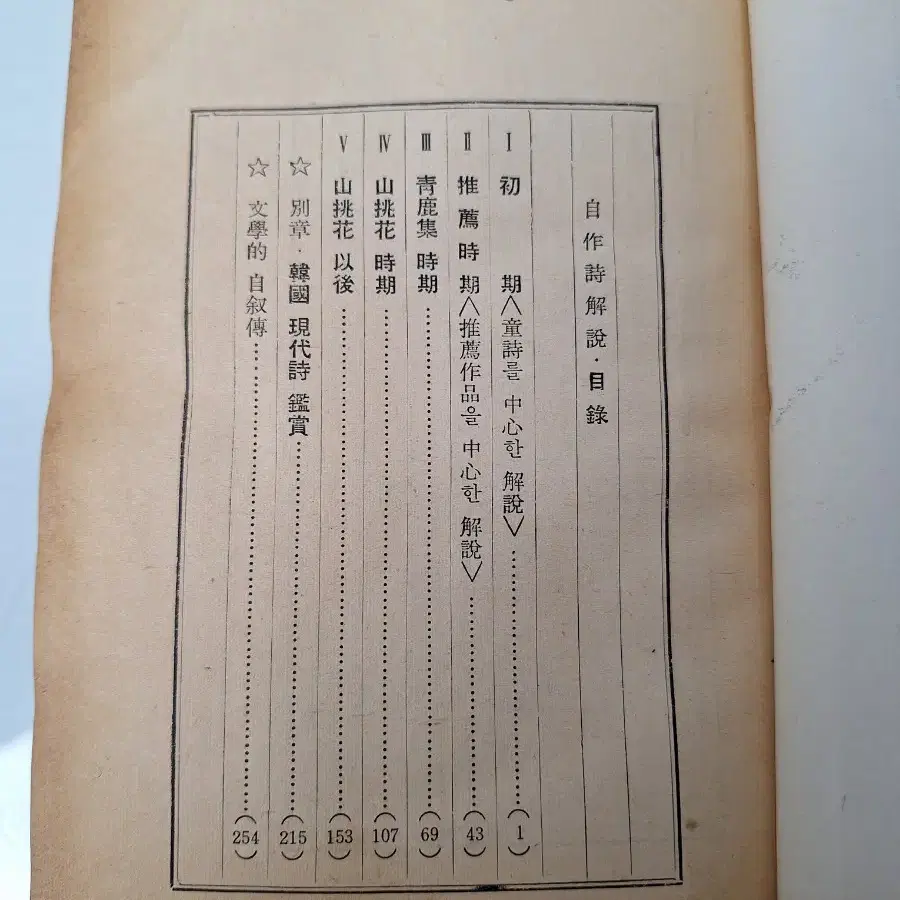 自作詩解說·目錄
Ⅰ 初期<童詩를 中心한 解說>……(1)
Ⅱ 推薦時期<推薦作品을 中心한 解說>……(43)
Ⅲ 靑鹿集 時期……(69)
Ⅳ 山挑花 時期……(107)
Ⅴ 山挑花 以後……(153)
☆ 別章·韓國 現代詩 鑑賞……(215)
☆ 文學的 自叙傳……(254)